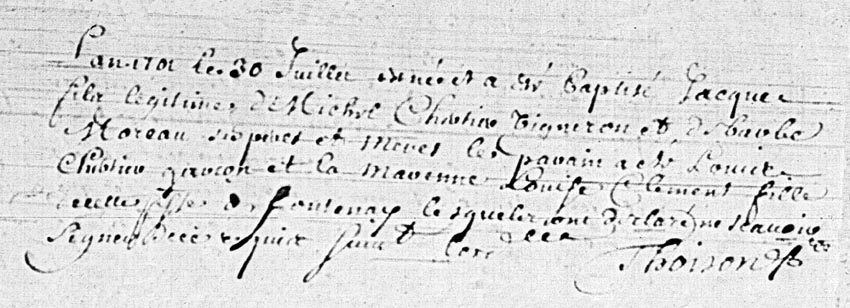 Lan 1701 le 30 Juillet est né et a esté Baptisé Jacque
fils legitime de Michel Chretien vigneron et de barbe
Moreau ses peres et meres le parain a esté Louis
Chretien garçon et la marenne Louise Clement fille
de cette psse de fontenay lesquels ont declaré ne scavoir
signer de ce requis suivt lord
Thoison